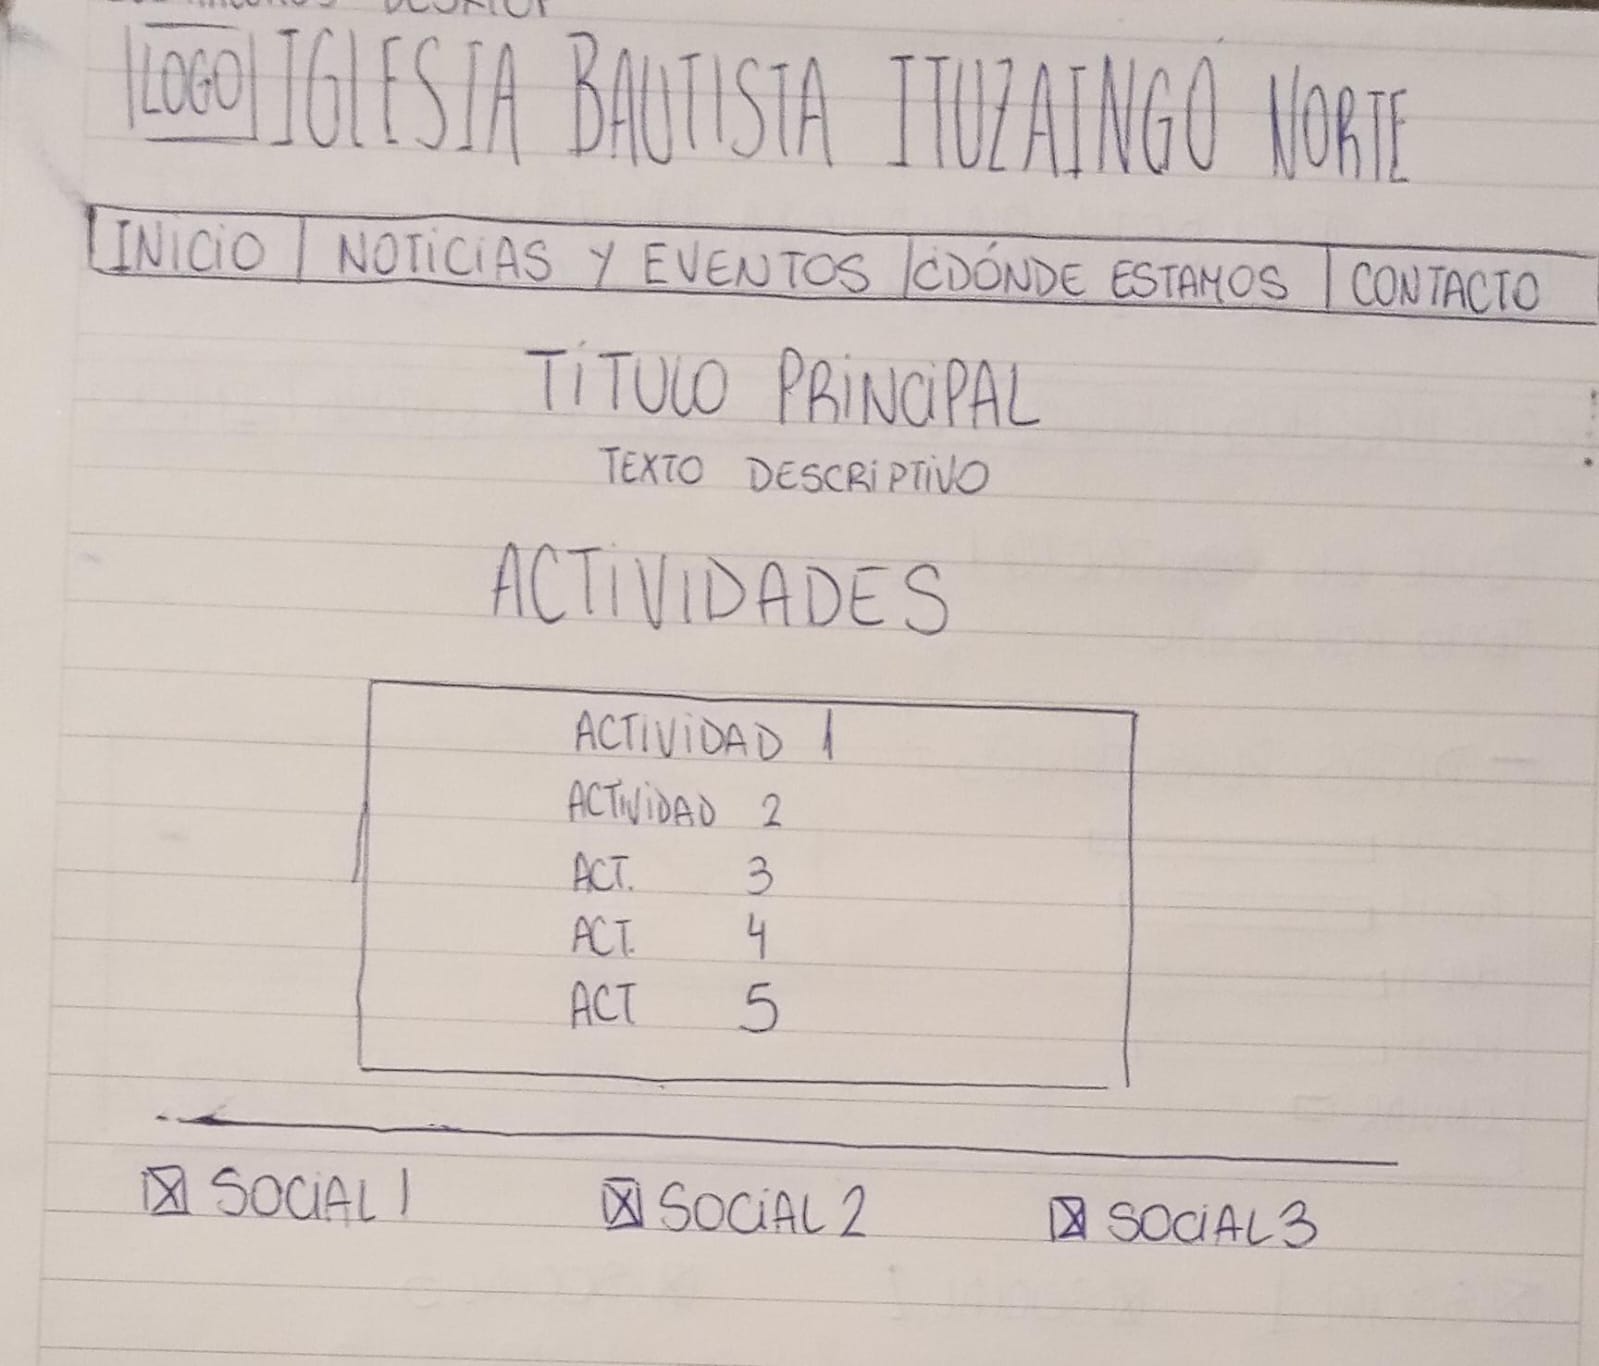 LOGO IGLESIA BAUTISTA ITUZAINGÓ NORTE
INICIO NOTICIAS Y EVENTOS ¿DÓNDE ESTAMOS CONTACTO
TÍTULO PRINCIPAL
TEXTO DESCRIPTIVO
ACTIVIDADES
ACTIVIDAD 1
ACTIVIDAD 2
ACT. 3
ACT. 4
ACT 5
SOCIAL 1 SOCIAL 2 SOCIAL 3